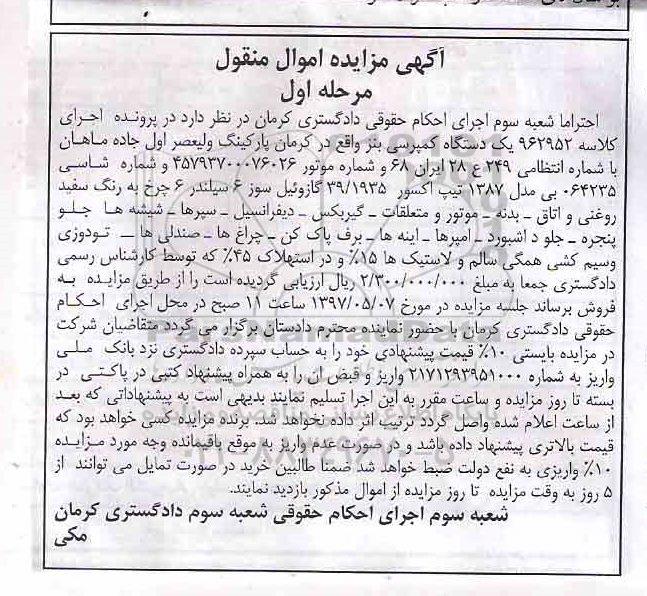 آگهی مزایده اموال منقول
مرحله اول
احتراما شعبه سوم اجرای احکام حقوقی دادگستری کرمان در نظر دارد در پرونده اجرای
کلاسه ۹۶۲۹۵۲ یک دستگاه کمپرسی بنز واقع در کرمان پارکینگ ولیعصر اول جاده ماهان
با شماره انتظامی ۲۴۹ ع ۲۸ ایران ۶۸ و شماره موتور ۴۵۷۹۳۷۰۰۰۷۶۰۲۶ و شماره شاسی
۰۶۴۲۳۵ بی مدل ۱۳۸۷ تیپ اکسور ۳۹/۱۹۳۵ گازوئیل سوز ۶ سیلندر ۶ چرخ به رنگ سفید
روغنی و اتاق ـ بدنه ـ موتور و متعلقات ـ گیربکس ـ دیفرانسیل ـ سپرها ـ شیشه ها جلو
پنجره ـ جلو د اشبورد ـ امپرها ـ اینه ها ـ برف پاک کن ـ چراغ ها ـ صندلی ها ـ تودوزی
وسیم کشی همگی سالم و لاستیک ها ۱۵٪ و در استهلاک ۴۵٪ که توسط کارشناس رسمی
دادگستری جمعا به مبلغ ۲/۳۰۰/۰۰۰/۰۰۰ ریال ارزیابی گردیده است را از طریق مزایده به
فروش برساند جلسه مزایده در مورخ ۱۳۹۷/۰۵/۰۷ ساعت ۱۱ صبح در محل اجرای احکام
حقوقی دادگستری کرمان با حضور نماینده محترم دادستان برگزار می گردد متقاضیان شرکت
در مزایده بایستی ۱۰٪ قیمت پیشنهادی خود را به حساب سپرده دادگستری نزد بانک ملی
واریز به شماره ۲۱۷۱۲۹۳۹۵۱۰۰۰ واریز و قبض ان را به همراه پیشنهاد کتبی در پاکتی در
بسته تا روز مزایده و ساعت مقرر به این اجرا تسلیم نمایند بدیهی است به پیشنهاداتی که بعد
از ساعت اعلام شده واصل گردد ترتیب اثر داده نخواهد شد. برنده مزایده کسی خواهد بود که
قیمت بالاتری پیشنهاد داده باشد و در صورت عدم واریز به موقع باقیمانده وجه مورد مزایده
۱۰٪ واریزی به نفع دولت ضبط خواهد شد ضمنا طالبین خرید در صورت تمایل می توانند از
۵ روز به وقت مزایده تا روز مزایده از اموال مذکور بازدید نمایند.
شعبه سوم اجرای احکام حقوقی شعبه سوم دادگستری کرمان
مکی